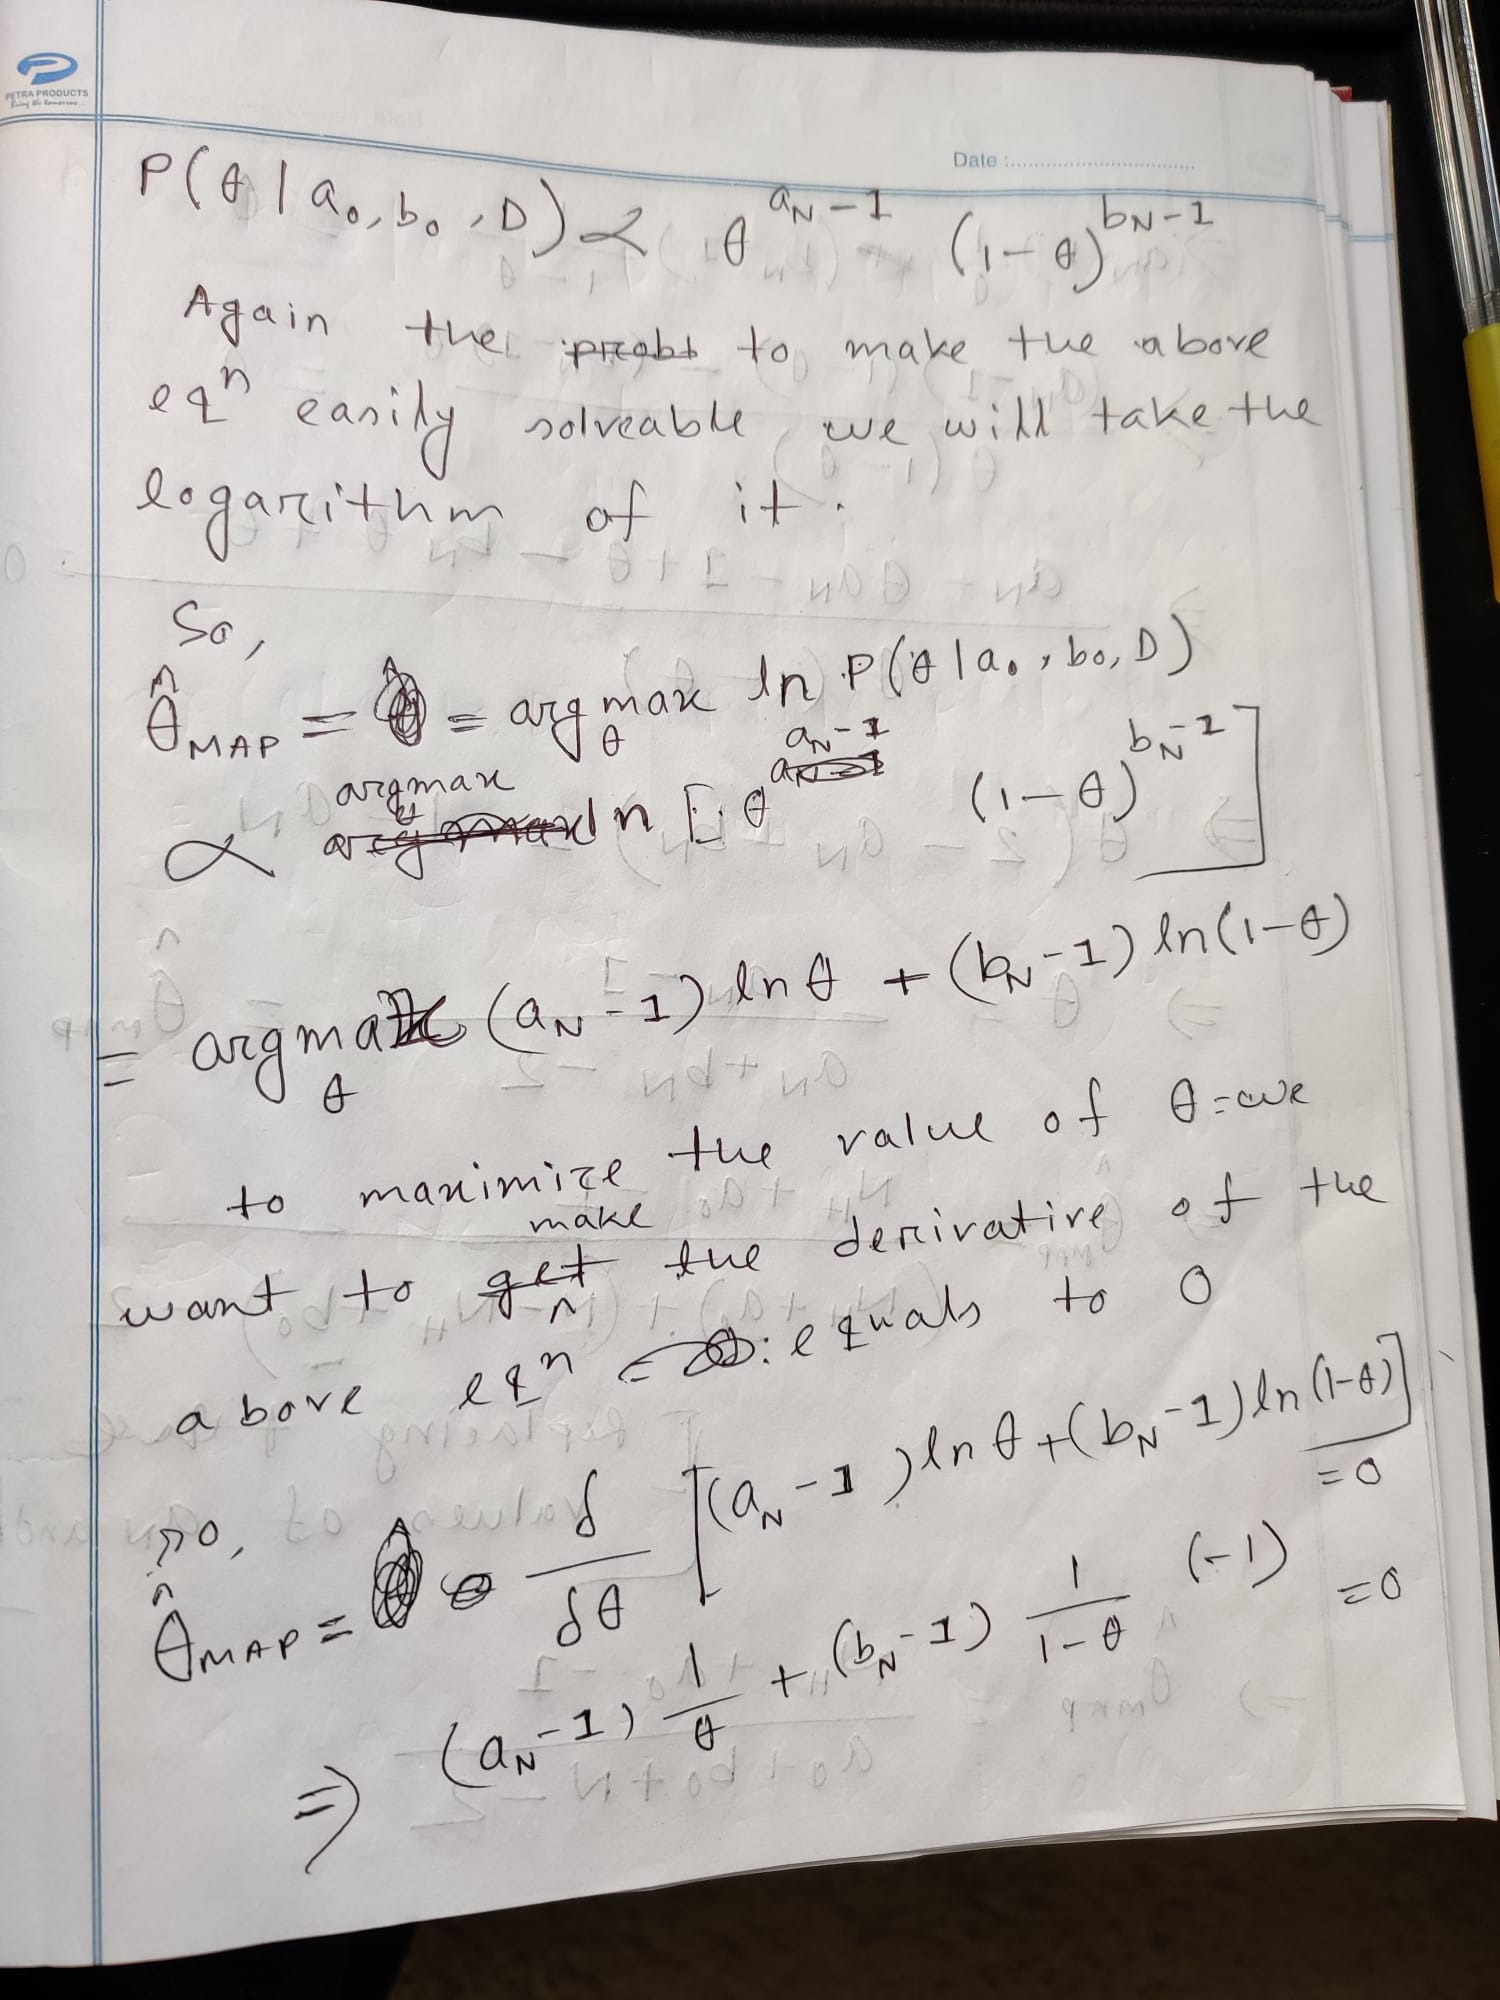 PETRA PRODUCTS
Bring the tomorrow...
Date :
P(θ | a₀, b₀, D) ∝ θ^(a_N − 1) (1 − θ)^(b_N − 1)
Again the probt to make the above
eqⁿ easily solveable we will take the
logarithm of it.
So,
θ̂_MAP = = argmax_θ ln P(θ | a₀, b₀, D)
∝ argmax_θ ln [θ^(a_N − 1) (1 − θ)^(b_N − 1)]
= argmax_θ (a_N − 1) ln θ + (b_N − 1) ln(1 − θ)
to maximize the value of θ = we
want to get make the derivative of the
above eqⁿ equals to 0
so,
θ̂_MAP = δ/δθ [(a_N − 1) ln θ + (b_N − 1) ln(1 − θ)] = 0
⇒ (a_N − 1) 1/θ + (b_N − 1) 1/(1 − θ) (−1) = 0